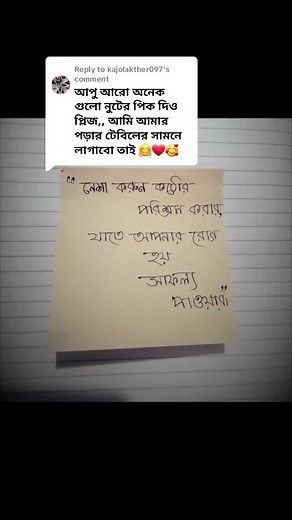 Reply to kajolakther097's
comment
আপু আরো অনেক
গুলো নুটের পিক দিও
প্লিজ,, আমি আমার
পড়ার টেবিলের সামনে
লাগাবো তাই 🤗❤️🥰
“নেশা করুন কঠোর
পরিশ্রম করার,
যাতে আপনার রোগ
হয়
সাফল্য
পাওয়ার”